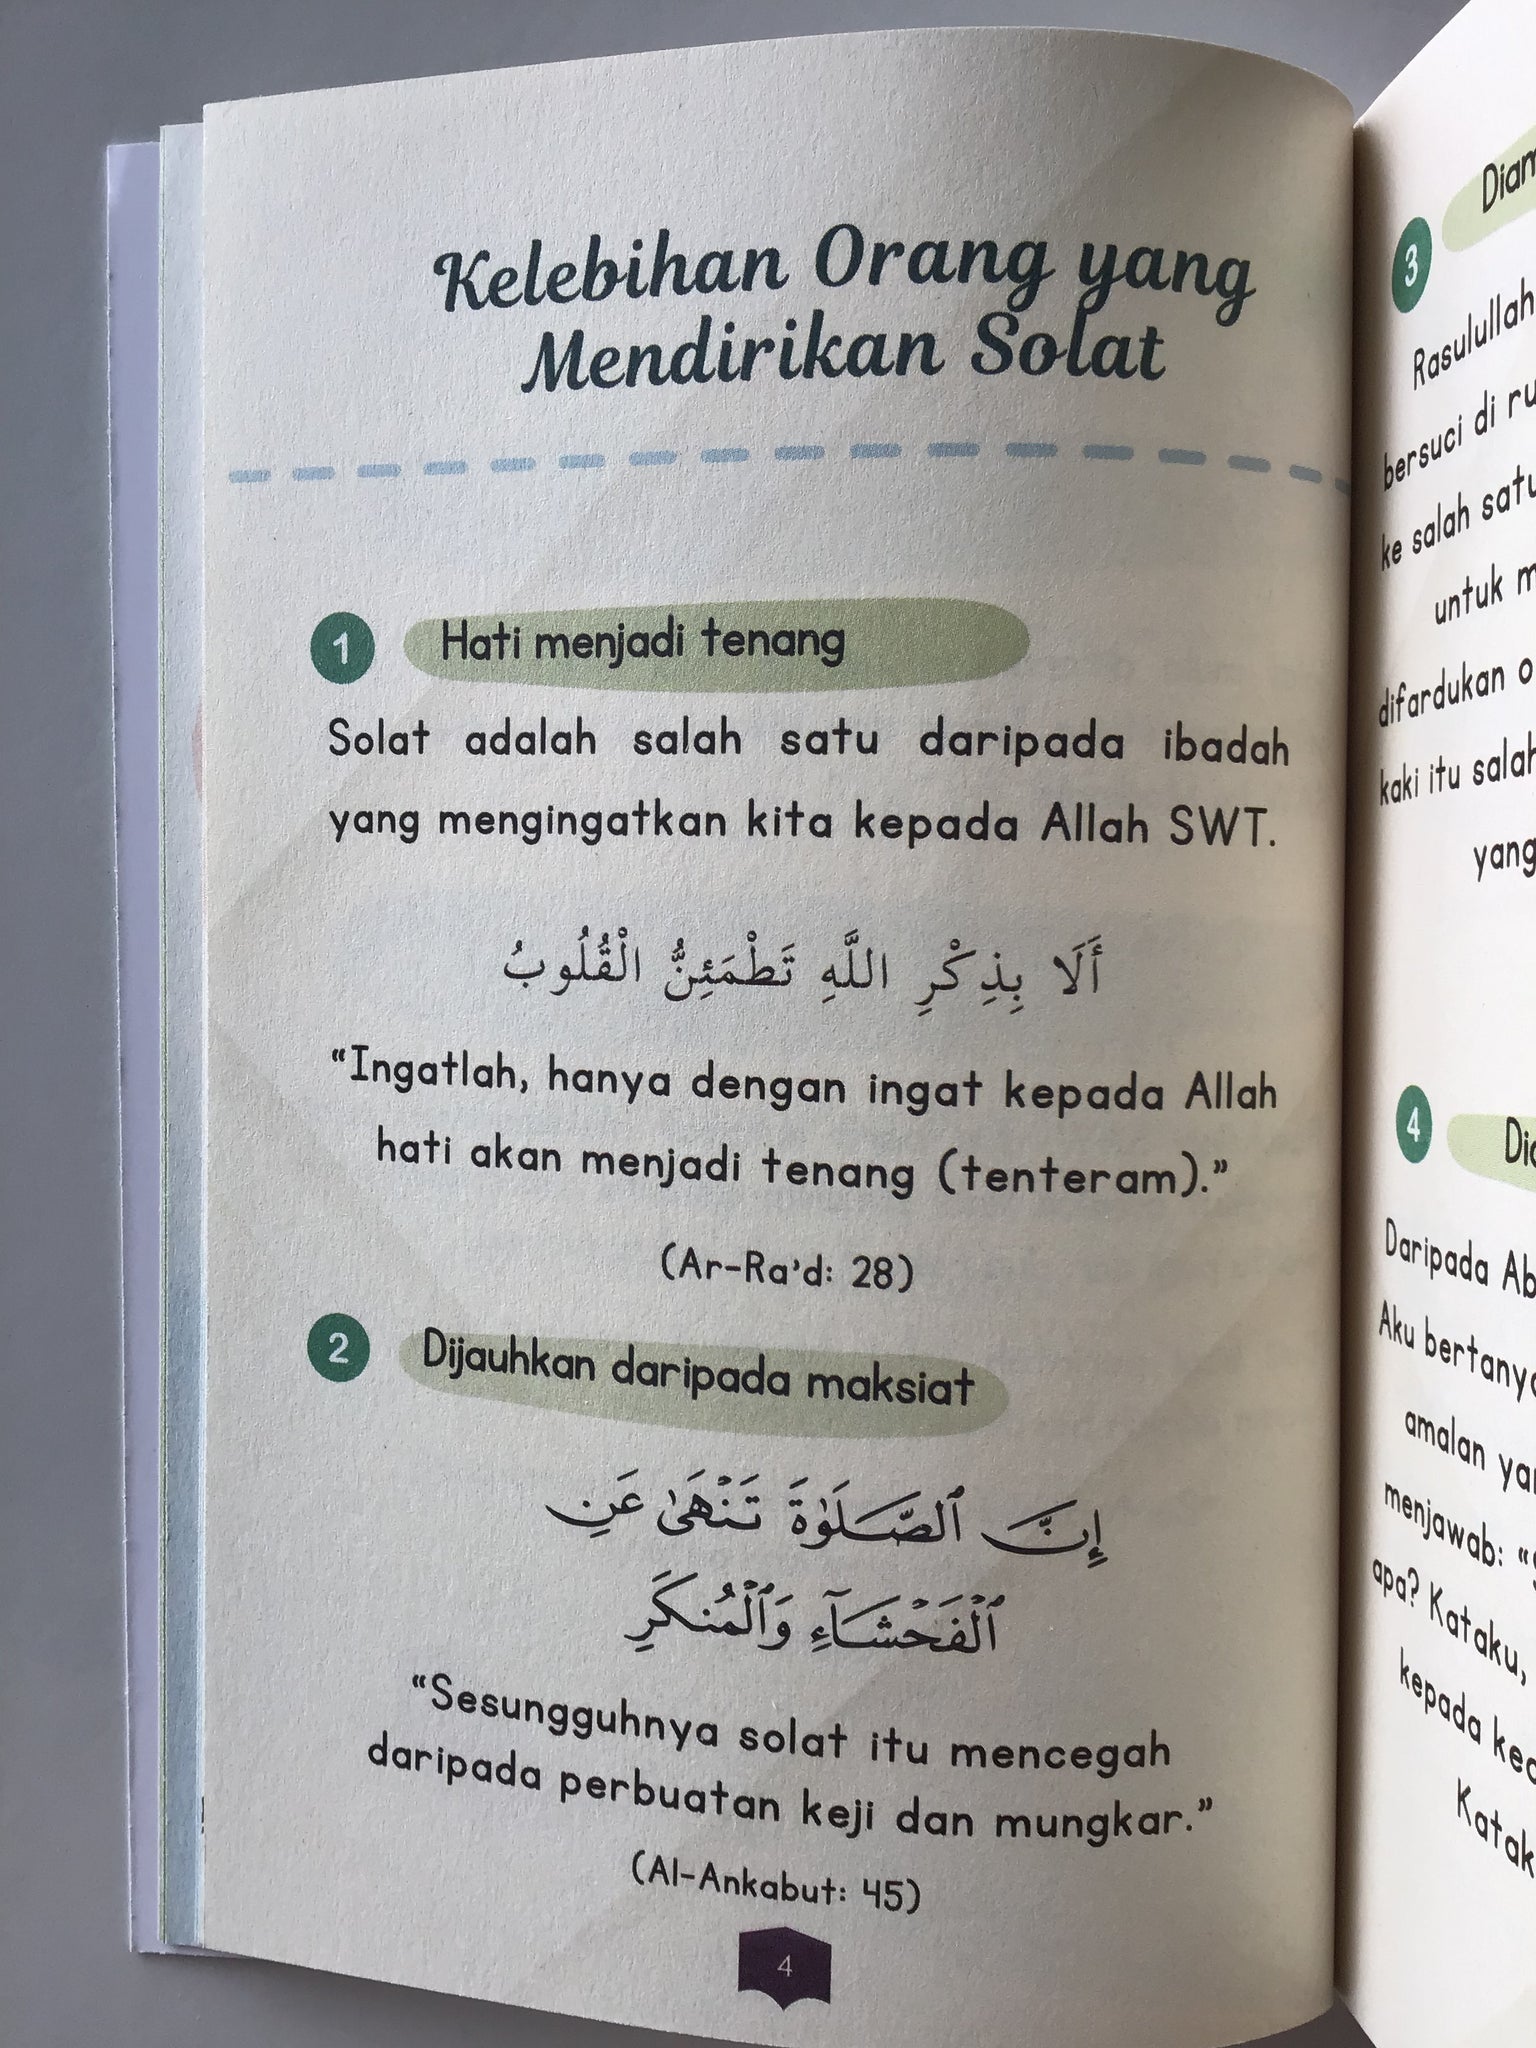 Kelebihan Orang yang
Mendirikan Solat
1 Hati menjadi tenang
Solat adalah salah satu daripada ibadah
yang mengingatkan kita kepada Allah SWT.
أَلَا بِذِكْرِ اللَّهِ تَطْمَئِنُّ الْقُلُوبُ
“Ingatlah, hanya dengan ingat kepada Allah
hati akan menjadi tenang (tenteram).”
(Ar-Ra’d: 28)
2 Dijauhkan daripada maksiat
إِنَّ ٱلصَّلَوٰةَ تَنْهَىٰ عَنِ
ٱلْفَحْشَآءِ وَٱلْمُنكَرِ
“Sesungguhnya solat itu mencegah
daripada perbuatan keji dan mungkar.”
(Al-Ankabut: 45)
4
3
Rasulullah
bersuci di
ke salah
untuk
difardukan
kaki itu
yang
4
Daripada
Aku
amalan
menjawab:
apa? Kataku,
kepada